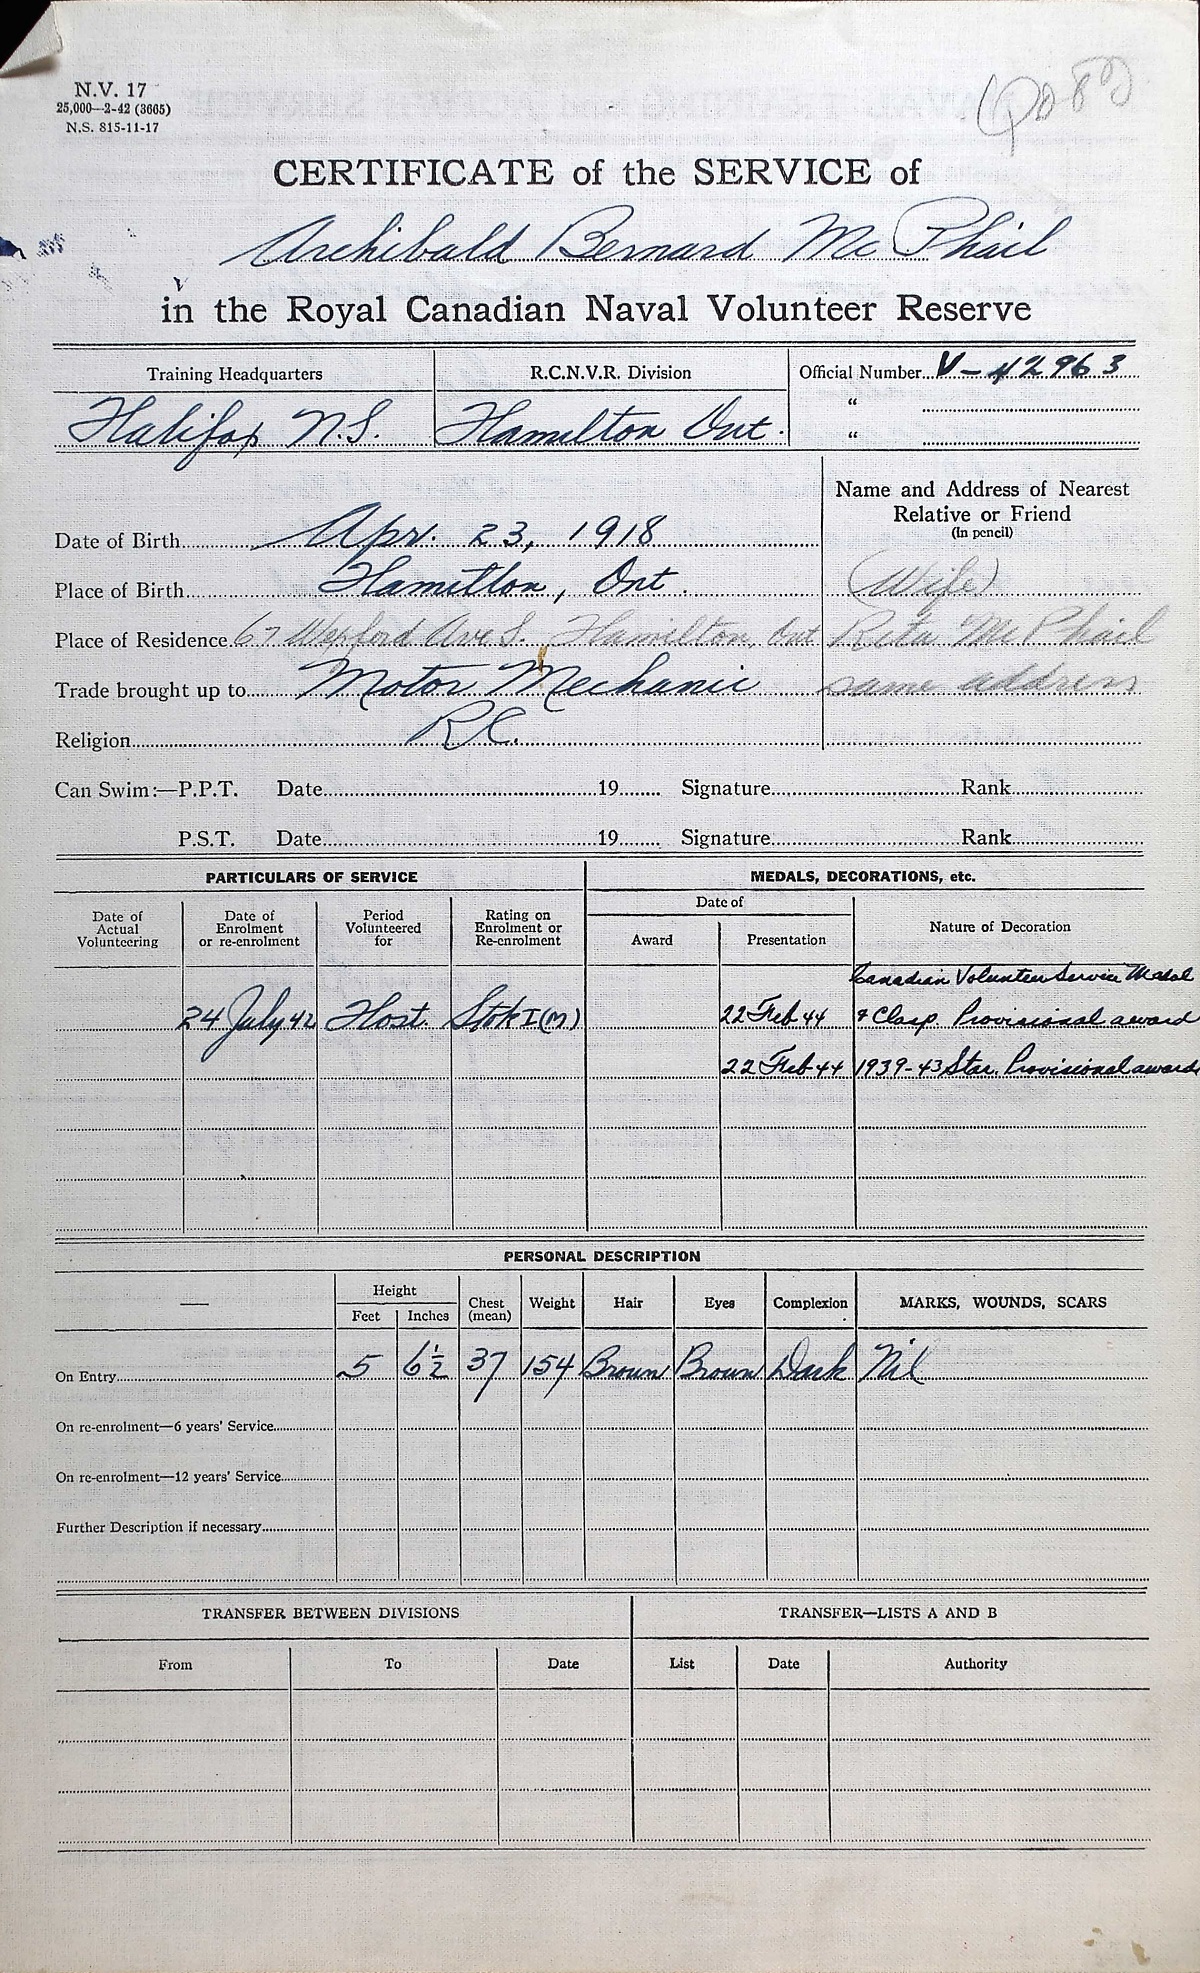 N.V. 17
25,000—2-42 (3665)
N.S. 815-11-17
CERTIFICATE of the SERVICE of
Archibald Bernard Mc Phail
in the Royal Canadian Naval Volunteer Reserve
Training Headquarters R.C.N.V.R. Division Official Number V-42963
Halifax N.S. Hamilton Ont. "
"
Name and Address of Nearest
Relative or Friend
(In pencil)
Date of Birth Apr. 23, 1918
Place of Birth Hamilton, Ont. (Wife)
Place of Residence 67 Wexford Ave S. Hamilton, Ont Rita McPhail
Trade brought up to Motor Mechanic same address
Religion R.C.
Can Swim:—P.P.T. Date 19 Signature Rank
P.S.T. Date 19 Signature Rank
PARTICULARS OF SERVICE MEDALS, DECORATIONS, etc.
Date of Actual Volunteering Date of Enrolment or re-enrolment Period Volunteered for Rating on Enrolment or Re-enrolment Date of Award Presentation Nature of Decoration
Canadian Volunteer Service Medal
24 July 42 Host. Stok I (M) 22 Feb 44 & Clasp. Provisional award
22 Feb 44 1939-43 Star. Provisional award
PERSONAL DESCRIPTION
— Height Feet Inches Chest (mean) Weight Hair Eyes Complexion MARKS, WOUNDS, SCARS
On Entry 5 6½ 37 154 Brown Brown Dark Nil
On re-enrolment—6 years' Service
On re-enrolment—12 years' Service
Further Description if necessary
TRANSFER BETWEEN DIVISIONS TRANSFER—LISTS A AND B
From To Date List Date Authority